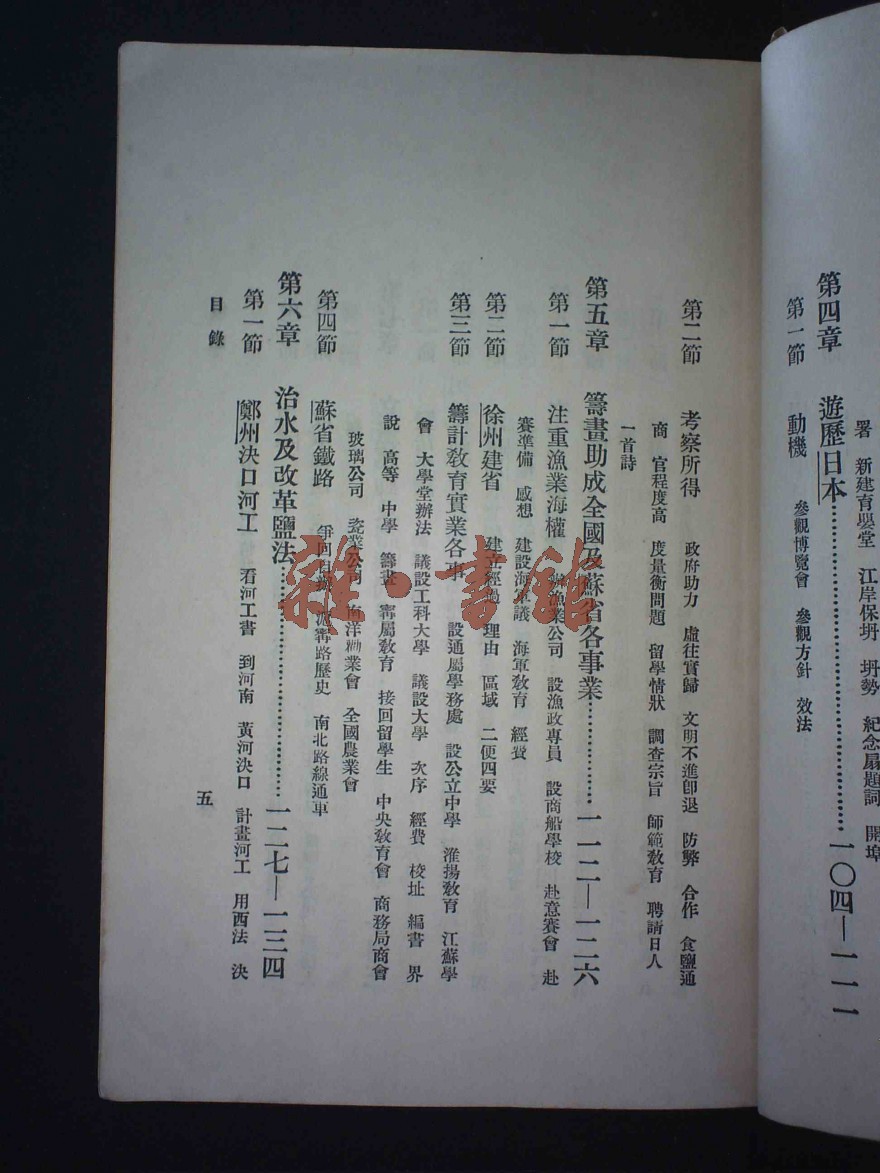 署 新建育嬰堂 江岸保坍 坍勢 紀念扁題詞 開埠
第四章 遊歷日本……………一〇四—一一一
第一節 動機 參觀博覽會 參觀方針 效法
第二節 考察所得 政府助力 虛往實歸 文明不進卽退 防弊 合作 食鹽通
商 官程度高 度量衡問題 留學情狀 調查宗旨 師範敎育 聘請日人
一首詩
第五章 籌畫助成全國及蘇省各事業……………一一二—一二六
第一節 注重漁業海權 辦漁業公司 設漁政專員 設商船學校 赴意賽會 赴
賽準備 感想 建設海軍議 海軍敎育 經費
第二節 徐州建省 建立經過 理由 區域 二便四要
第三節 籌計敎育實業各事 設通屬學務處 設公立中學 淮揚敎育 江蘇學
會 大學堂辦法 議設工科大學 議設大學 次序 經費 校址 編書 界
說 高等 中學 籌畫 寗屬敎育 接回留學生 中央敎育會 商務局商會
玻璃公司 瓷業公司 南洋勸業會 全國農業會
第四節 蘇省鐵路 爭回自辦 滬寗路歷史 南北路線通車
第六章 治水及改革鹽法……………一二七—一三四
第一節 鄭州決口河工 看河工書 到河南 黃河決口 計畫河工 用西法 決
目錄 五
雜·書館